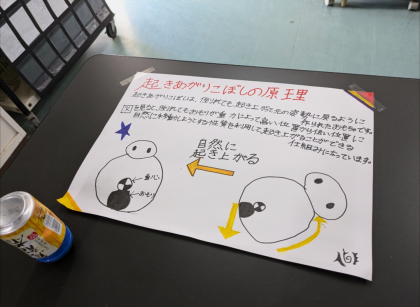 起きあがりこぼしの原理
起きあがりこぼしは、倒れても起き上がり元の姿勢に戻るように
作られたおもちゃです。
図を見ると、倒れてもおもりが重力によって高い位置から低い位置に
自然に移動しようとする性質を利用して、起き上がることができる
仕組みになっています。
自然に
起き上がる
重心
おもり